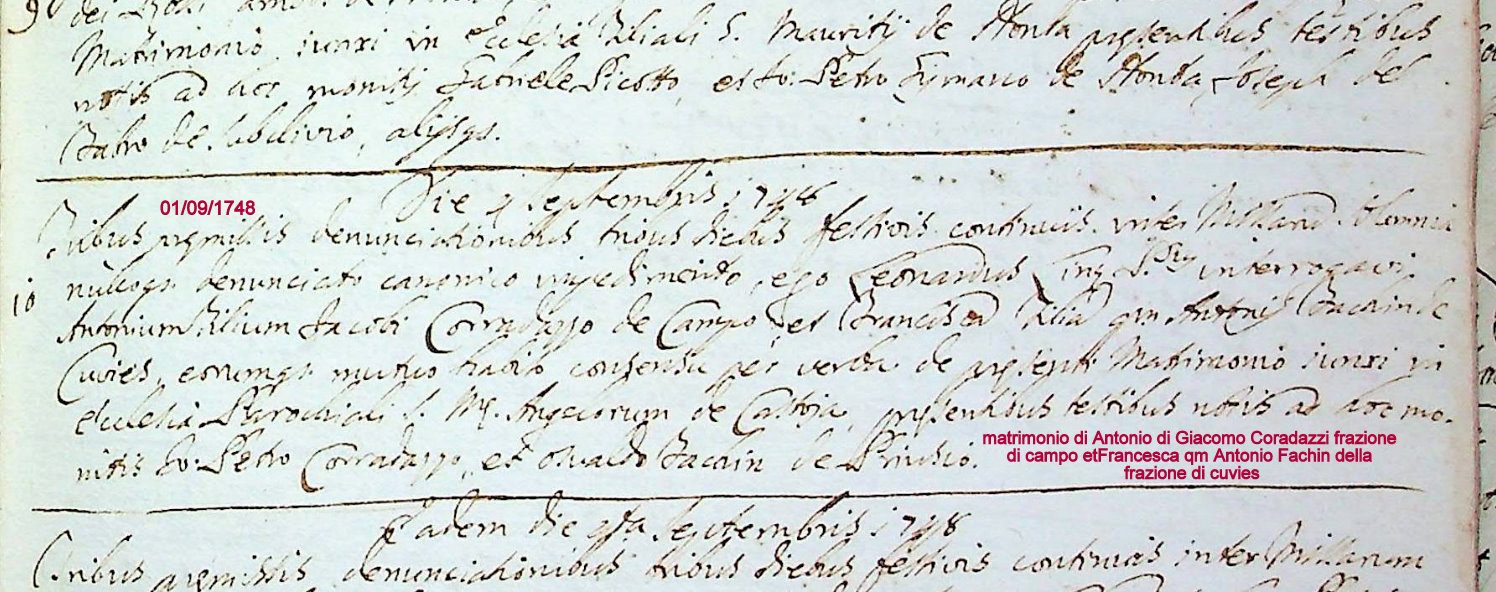 9
Matrimonio iunxi in Ecclesia filiali S. Mauritij de presentibus testibus
notis ad hoc monitis et Jo: Petro de Joseph del
Fabro de alijsqs.
Die 1 Septembris 1748
01/09/1748
Tribus premissis denunciationibus tribus diebus festivis continuis inter Missarum Solemnia
10
nulloqs denunciato canonico impedimento, ego Leonardus interrogavi
Antonium filium Jacobi Corradazzo de Campo, et Francisca filia qm Antonij Fachin de
Cuvies, eorumqs mutuo habito consensu per verba de presenti Matrimonio iunxi in
Ecclesia Parochiali S. Me. Angelorum de Castoia, presentibus testibus notis ad hoc mo-
nitis Jo: Petro Corradazzo, et Osvaldo Fachin de Priusio.
matrimonio di Antonio di Giacomo Coradazzi frazione
di campo etFrancesca qm Antonio Fachin della
frazione di cuvies
Eadem die Septembris 1748
Tribus premissis denunciationibus tribus diebus festivis continuis inter Missarum